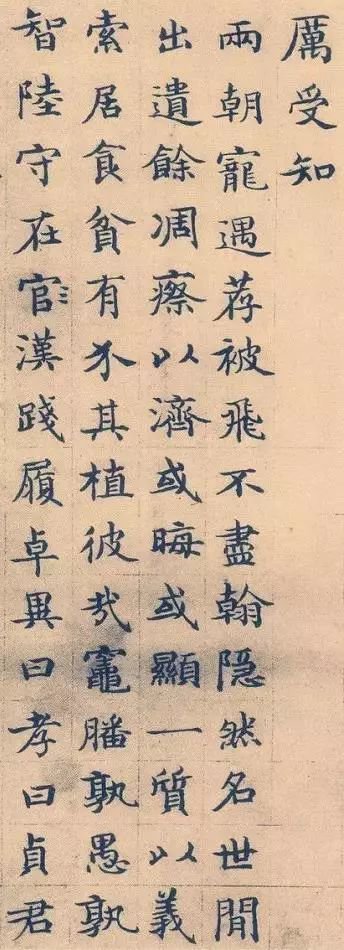 厲受知
兩朝寵遇荐被飛不盡翰隠然名世間
出遺餘凋瘵以濟或晦或顯一質以義
索居食貧有其植彼哉竈膰孰愚孰
智陸守在官漢踐履卓異曰孝曰貞君